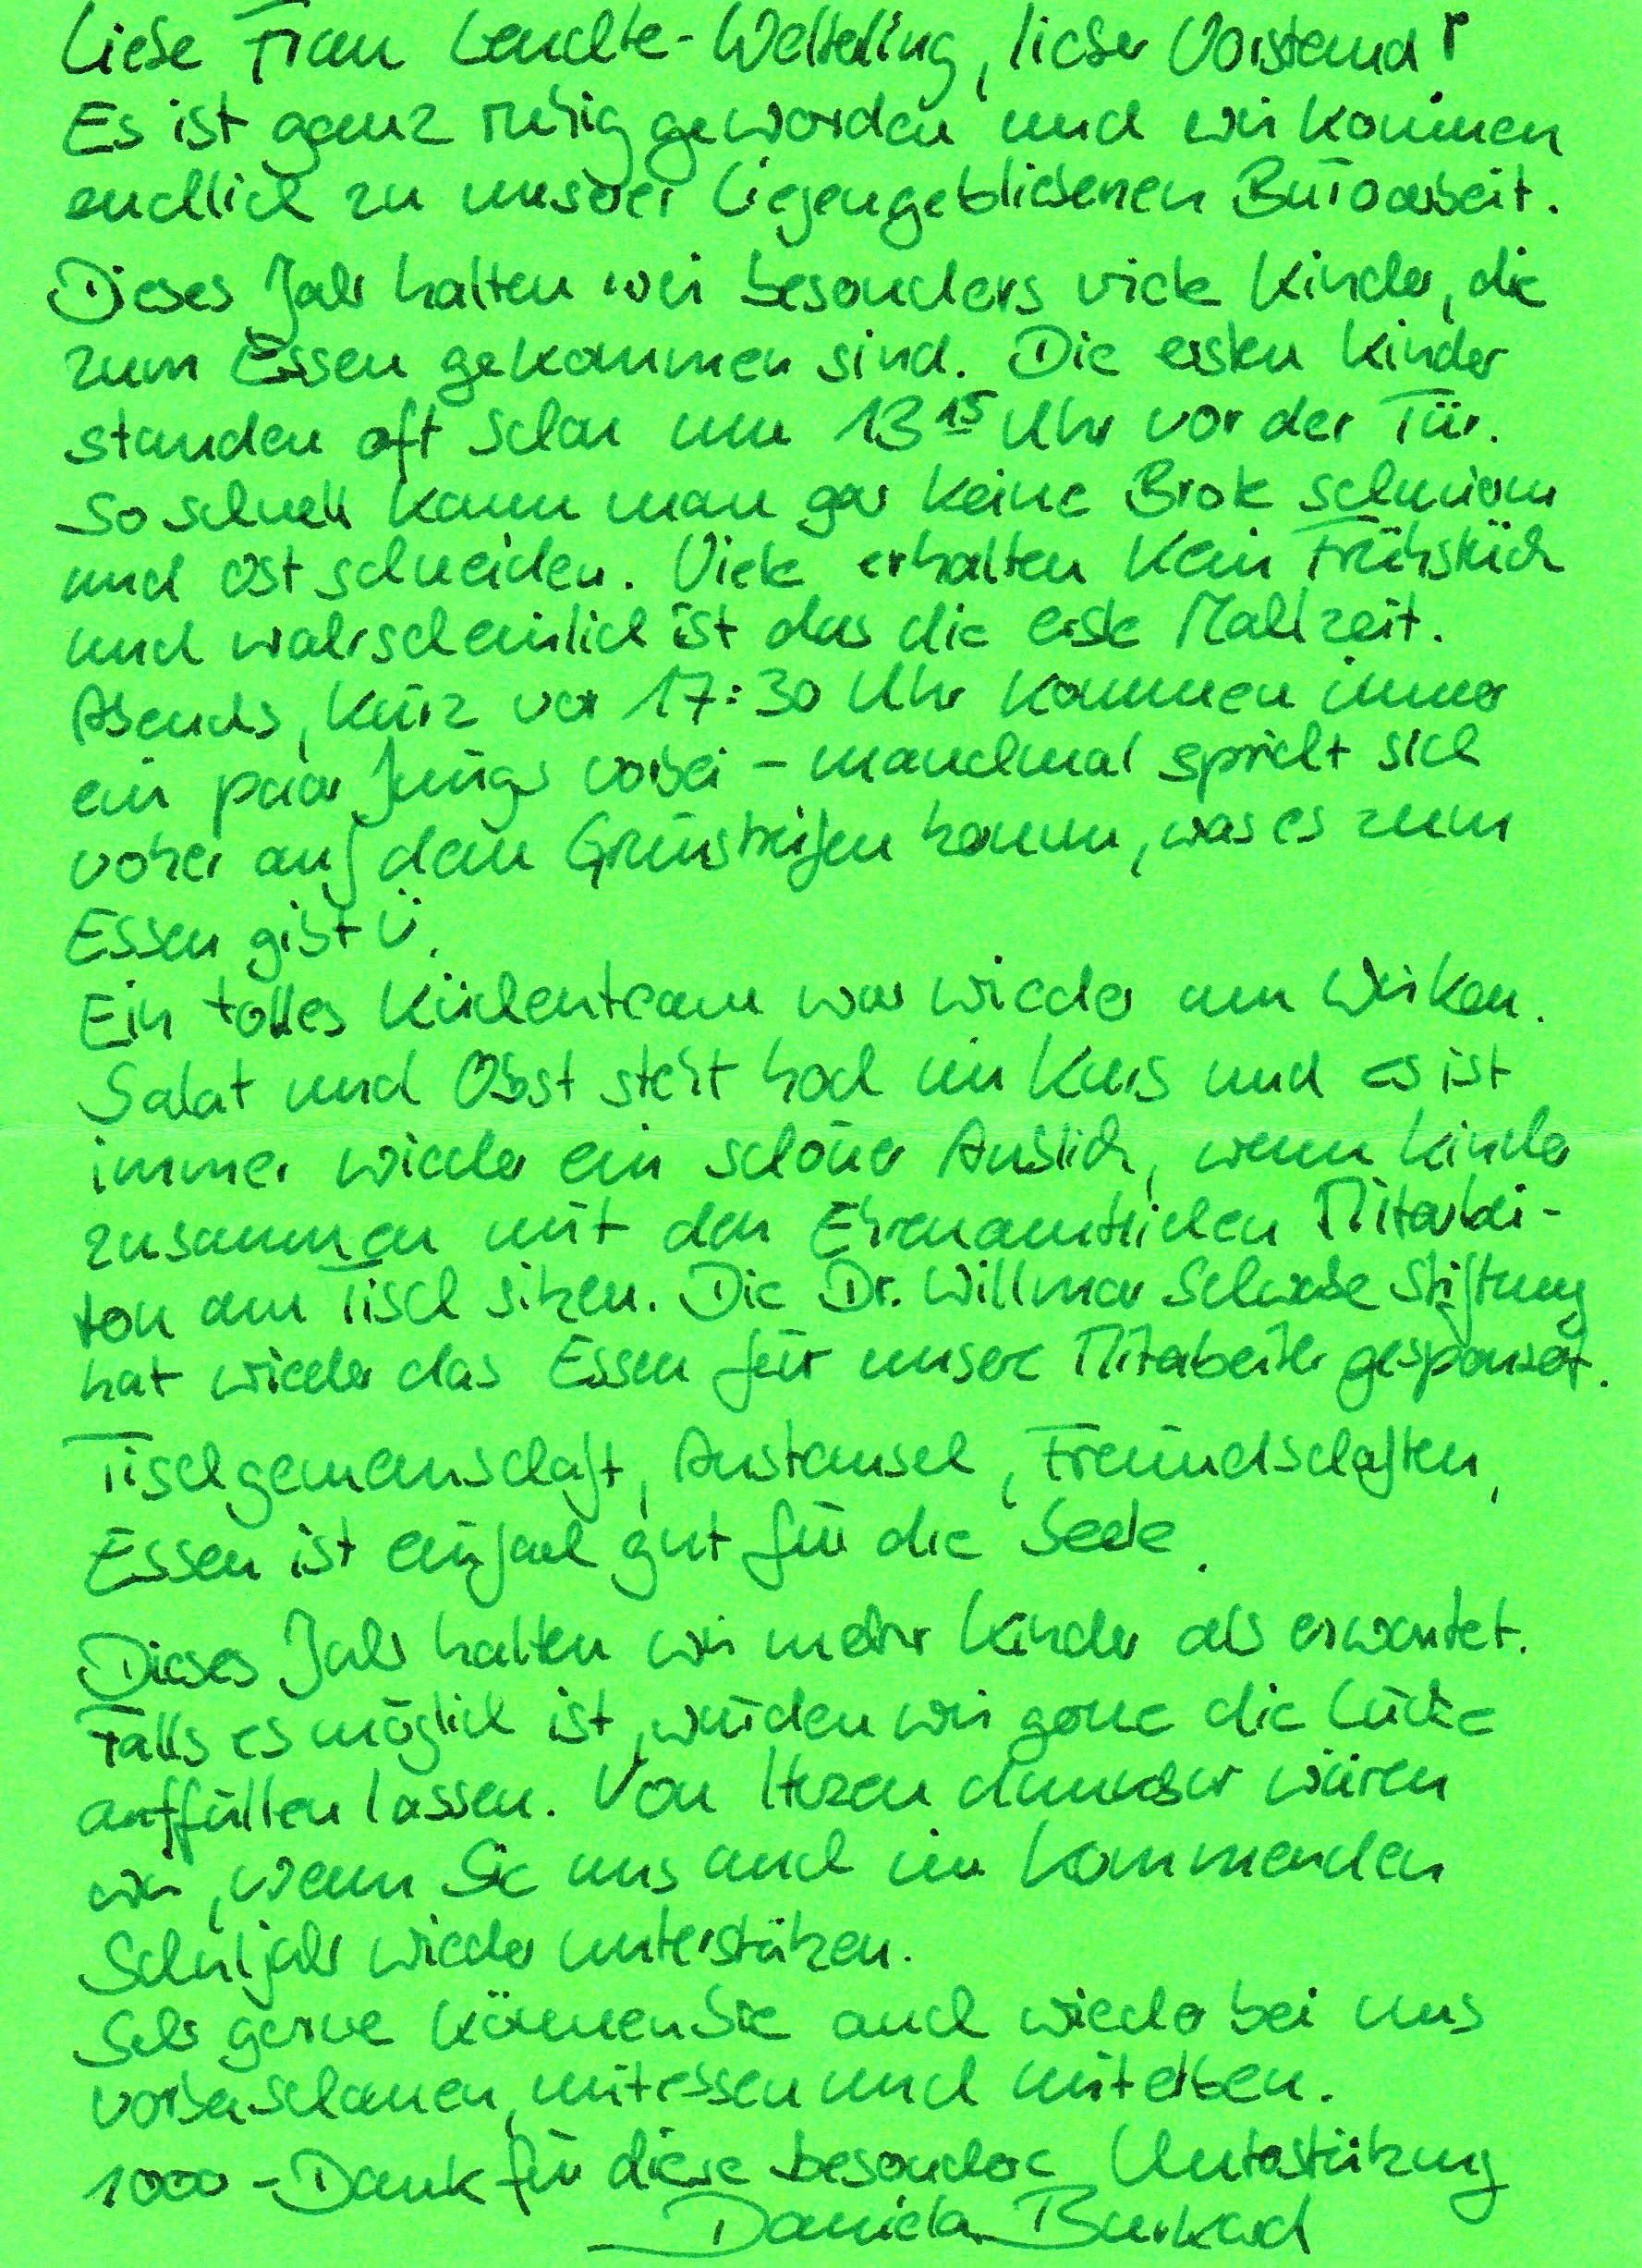 Liebe Frau Leuchte-Wetterling, lieber Vorstand!
Es ist ganz ruhig geworden und wir kommen
endlich zu unserer liegengebliebenen Büroarbeit.
Dieses Jahr hatten wir besonders viele Kinder, die
zum Essen gekommen sind. Die ersten Kinder
standen oft schon um 13 15 Uhr vor der Tür.
So schnell kann man gar keine Brote schmieren
und Obst schneiden. Viele erhalten kein Frühstück
und wahrscheinlich ist das die erste Mahlzeit.
Abends, kurz vor 17:30 Uhr kommen immer
ein paar Jungs vorbei - manchmal spricht sich
vorher auf dem Grünstreifen herum, was es zum
Essen gibt Ü.
Ein tolles Küchenteam war wieder am Wirken.
Salat und Obst steht hoch im Kurs und es ist
immer wieder ein schöner Anblick, wenn Kinder
zusammen mit den Ehrenamtlichen Mitarbei-
tern am Tisch sitzen. Die Dr. Willmar Schwabe Stiftung
hat wieder das Essen für unsere Mitarbeiter gesponsert.
Tischgemeinschaft, Austausch, Freundschaften,
Essen ist einfach gut für die Seele.
Dieses Jahr hatten wir mehr Kinder als erwartet.
Falls es möglich ist, würden wir gerne die Lücke
auffüllen lassen. Von Herzen dankbar wären
wir, wenn Sie uns auch im kommenden
Schuljahr wieder unterstützen.
Sehr gerne können Sie auch wieder bei uns
vorbeischauen, mitessen und miterleben.
1000 - Dank für diese besondere Unterstützung
Daniela Burkard